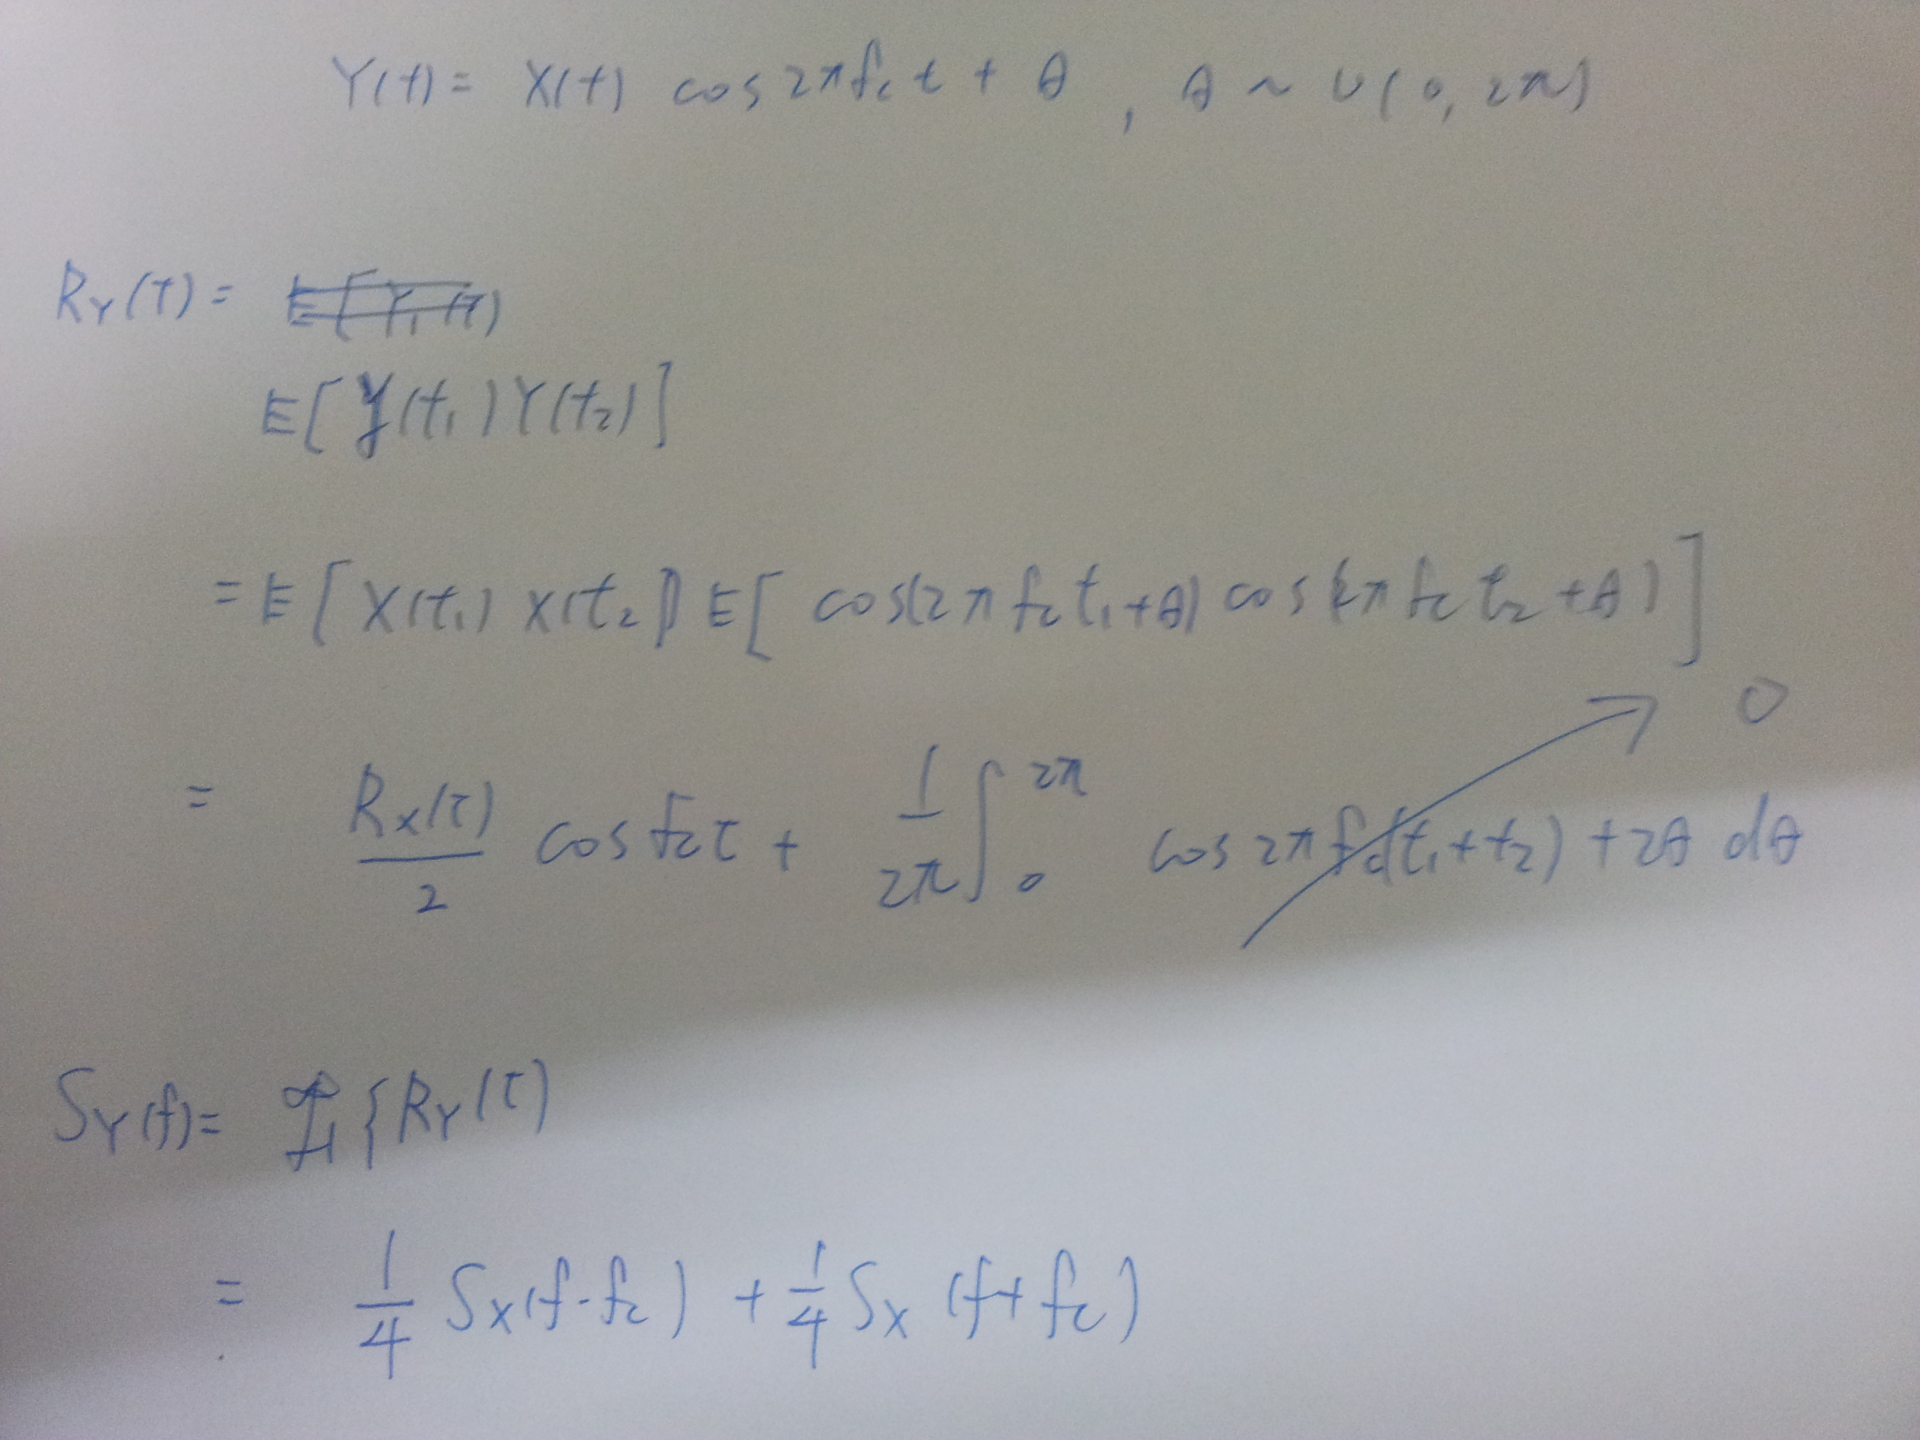 Y(t) = X(t) cos 2πfct + θ , θ ~ U(0, 2π)
RY(τ) = E[Y1(τ)
E[Y(t1)Y(t2)]
= E[X(t1) X(t2)] E[cos(2πfct1+θ) cos(2πfct2+θ)]
0
= RX(τ)/2 cos fcτ + 1/2π ∫0 2π cos 2πfc(t1+t2)+2θ dθ
SY(f) = F{RY(τ)
= 1/4 SX(f-fc) + 1/4 SX(f+fc)